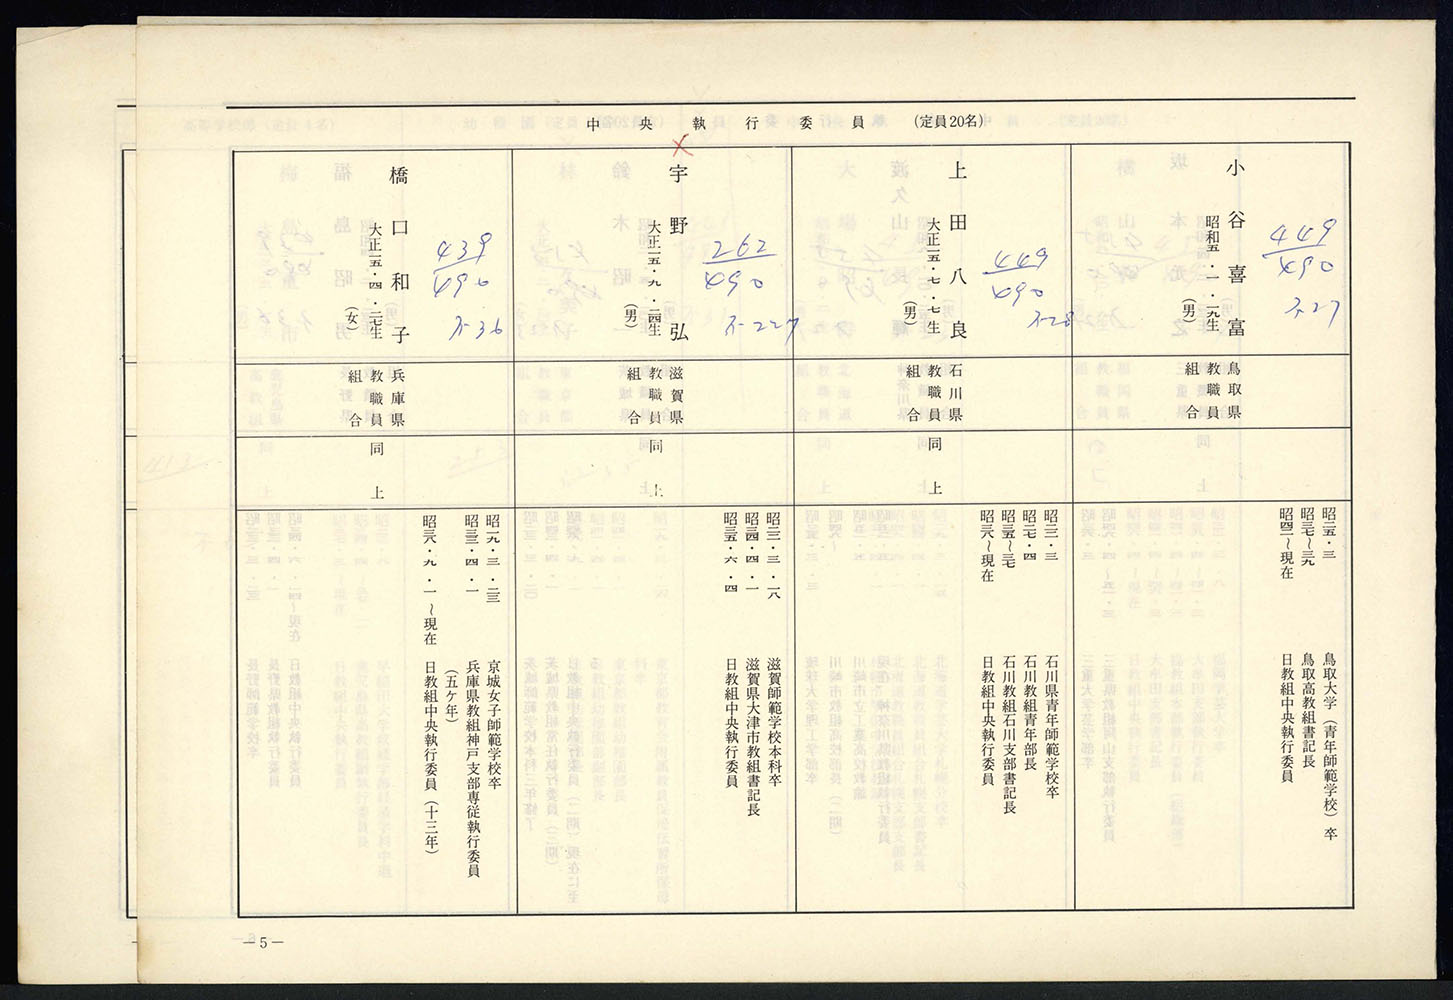 中央執行委員 (定員20名)
小谷喜富
昭和五・一・一九生
(男)
449
490
不27
鳥取県
教職員
組合
昭二五・三 鳥取大学(青年師範学校)卒
昭三七〜三九 鳥取高教組書記長
昭四一〜現在 日教組中央執行委員
上田八良
大正一五・七・七生
(男)
449
490
不28
石川県
教職員
組合
同上
昭二三・三 石川県青年師範学校卒
昭二七・四 石川教組青年部長
昭三五〜三七 石川教組石川支部書記長
昭三八〜現在 日教組中央執行委員
宇野弘
大正一五・九・二四生
(男)
262
490
不227
滋賀県
教職員
組合
同上
昭二三・三・一八 滋賀師範学校本科卒
昭三四・四・一 滋賀県大津市教組書記長
昭三五・六・四 日教組中央執行委員
橋口和子
大正一五・四・二七生
(女)
439
490
不36
兵庫県
教職員
組合
同上
昭一九・三・二三 京城女子師範学校卒
昭三三・四・一 兵庫県教組神戸支部専従執行委員
(五ケ年)
昭三八・九・一〜現在 日教組中央執行委員(十三年)
—5—